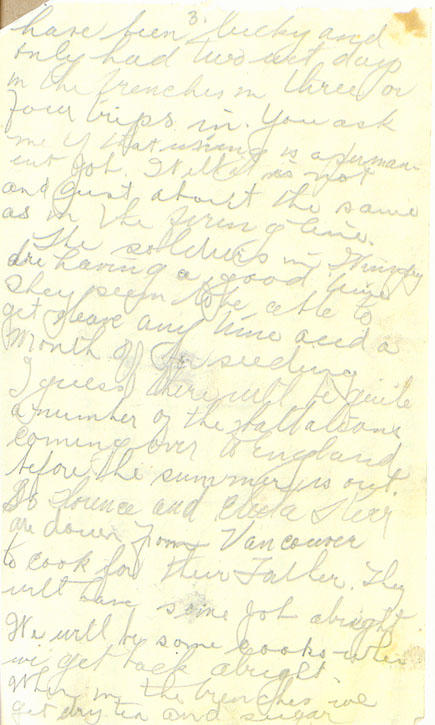 3.
have been lucky and
only had two wet days
in the trenches in three or
four trips in. You ask
me if that mining is a perman-
ent job. Well it is not
and just about the same
as in the firing line.
The soldiers in Winnipeg
are having a good time
they seem to be able to
get leave any time and a
month off for seeding
I guess there will be quite
a number of the battalions
coming over to England
before the summer is out.
So Florence and
are down from Vancouver
to cook for their Father. They
will have some job alright.
We will be some cooks when
we get back alright
When in the trenches we
get dry tea and sugar